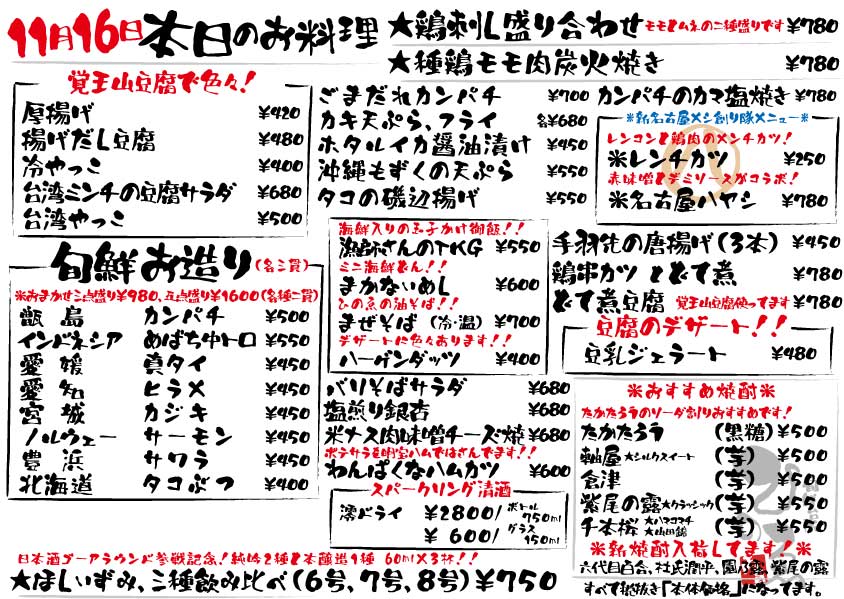 11月16日 本日のお料理
★鶏刺し盛り合わせ モモとムネの二種盛りです ¥780
★種鶏モモ肉炭火焼き ¥780
覚王山豆腐で色々!
厚揚げ ¥420
揚げだし豆腐 ¥480
冷やっこ ¥400
台湾ミンチの豆腐サラダ ¥680
台湾やっこ ¥500
旬鮮お造り(各三貫)
※おまかせ三点盛り¥980、五点盛り¥1600(各種二貫)
甑島 カンパチ ¥500
インドネシア めばち中トロ ¥550
愛媛 真タイ ¥450
愛知 ヒラメ ¥450
宮城 カジキ ¥450
ノルウェー サーモン ¥450
豊浜 サワラ ¥450
北海道 タコぶつ ¥400
ごまだれカンパチ ¥700
カキ天ぷら、フライ 各¥680
ホタルイカ醤油漬け ¥450
沖縄もずくの天ぷら ¥550
タコの磯辺揚げ ¥550
海鮮入りの玉子かけ御飯!!
漁師さんのTKG ¥550
ミニ海鮮どん!!
まかないめし ¥600
ひの魚の油そば!!
まぜそば (冷・温) ¥700
デザートに色々あります!!
ハーゲンダッツ ¥400
バリそばサラダ ¥680
塩煎り銀杏 ¥680
米ナス肉味噌チーズ焼 ¥680
ポテサラを明宝ハムではさんでます!!
わんぱくなハムカツ ¥600
スパークリング清酒
澪ドライ ¥2800/ボトル750ml
¥600/グラス150ml
カンパチのカマ塩焼き ¥780
※新名古屋メシ創り隊メニュー※
レンコンと鶏肉のメンチカツ!
米レンチカツ ¥250
赤味噌とデミソースがコラボ!
米名古屋ハヤシ ¥780
手羽先の唐揚げ(3本) ¥450
鶏串カツ とどて煮 ¥780
どて煮豆腐 覚王山豆腐使ってます ¥780
豆腐のデザート!!
豆乳ジェラート ¥480
※おすすめ焼酎※
たかたろうのソーダ割りおすすめです!
たかたろう (黒糖) ¥500
軸屋 ★シルクスイート (芋) ¥500
倉津 (芋) ¥500
紫尾の露 ★クラッシック (芋) ¥550
千本桜 ★ハマコマチ ★山田錦 (芋) ¥550
※新焼酎入荷してます!※
六代目百合、杜氏潤平、園乃露、紫尾の露
すべて税抜き「本体価格」になってます。
日本酒ゴーアラウンド参戦記念!純吟2種と本醸造1種 60ml×3杯!!
★ほしいずみ、三種飲み比べ(6号、7号、8号)¥750